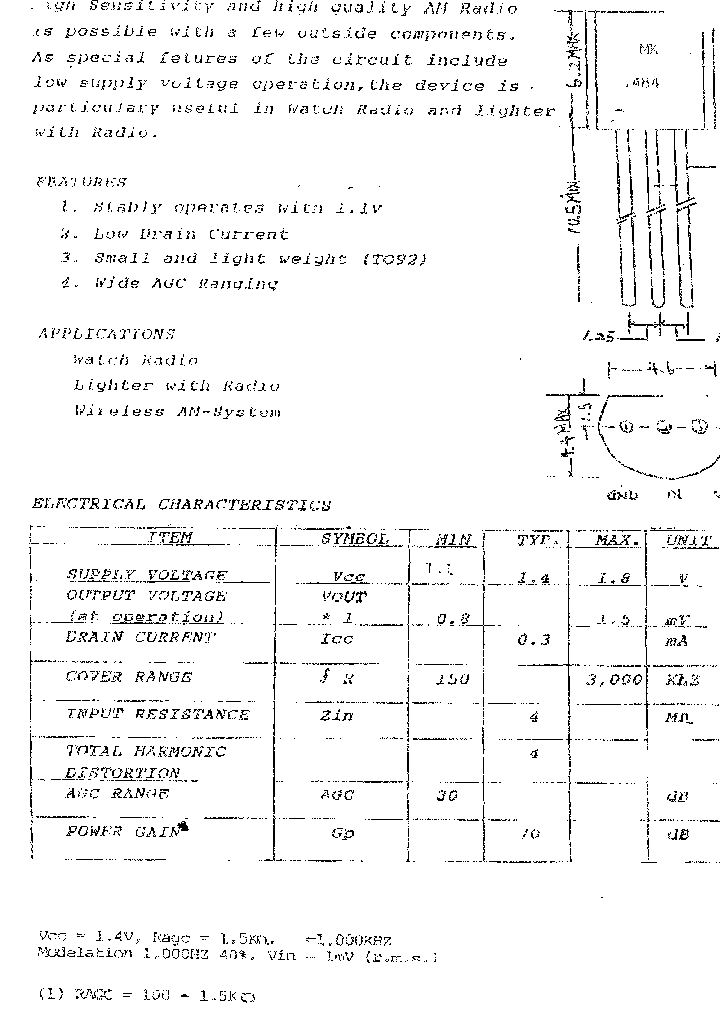 High Sensitivity and high quality AM Radio
is possible with a few outside components.
As special fetures of the circuit include
low supply voltage operation, the device is
particulary useful in Watch Radio and lighter
with Radio.
FEATURES
1. Stably operates with 1.1v
2. Low Drain Current
3. Small and light weight (TO92)
4. Wide AGC Ranging
APPLICATIONS
Watch Radio
Lighter with Radio
Wireless AM-System
MK
484
5.2 MAX
10.5 MIN
1.25
4.6
4.4 MAX
1.5
① ② ③
GND IN
ELECTRICAL CHARACTERISTICS
ITEM SYMBOL MIN TYP. MAX. UNIT
SUPPLY VOLTAGE Vcc 1.1 1.4 1.8 V
OUTPUT VOLTAGE VOUT
(at operation) * 1 0.8 1.5 mV
DRAIN CURRENT Icc 0.3 mA
COVER RANGE f R 150 3,000 KHZ
INPUT RESISTANCE Zin 4 MΩ
TOTAL HARMONIC 4
DISTORTION
AGC RANGE AGC 30 dB
POWER GAIN Gp 70 dB
Vcc = 1.4V, Ragc = 1.5KΩ. =1,000KHZ
Modelation 1,000HZ 40%. Vin = 1mV (r.m.s.)
(1) RAGC = 100 - 1.5KΩ